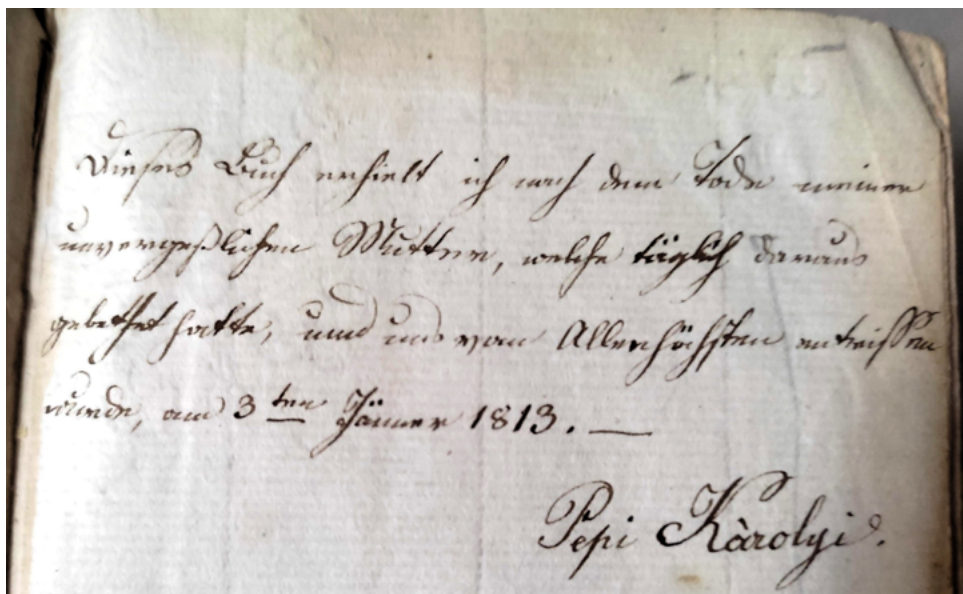 Dieses Buch erhielt ich nach dem Tode meiner
unvergeßlichen Mutter, welche täglich daraus
gebethet hatte, und uns vom Allerhöchsten entrissen
wurde, am 3ten Jänner 1813. —
Pepi Kàrolyi.